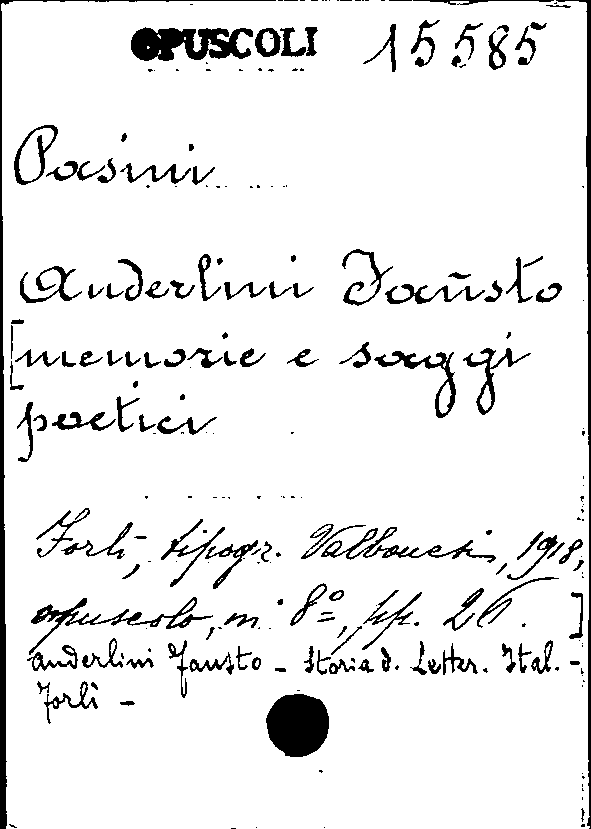 OPUSCOLI 15585
Pasini
Anderlini Fausto
[memorie e saggi
poetici
Forlì, tipogr. Valbonesi, 1918,
opuscolo, in 8º, pp. 26.]
Anderlini Fausto - Storia d. Letter. Ital. -
Forlì -